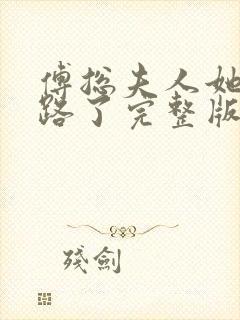 傅总夫人她
路了完整版
残劍